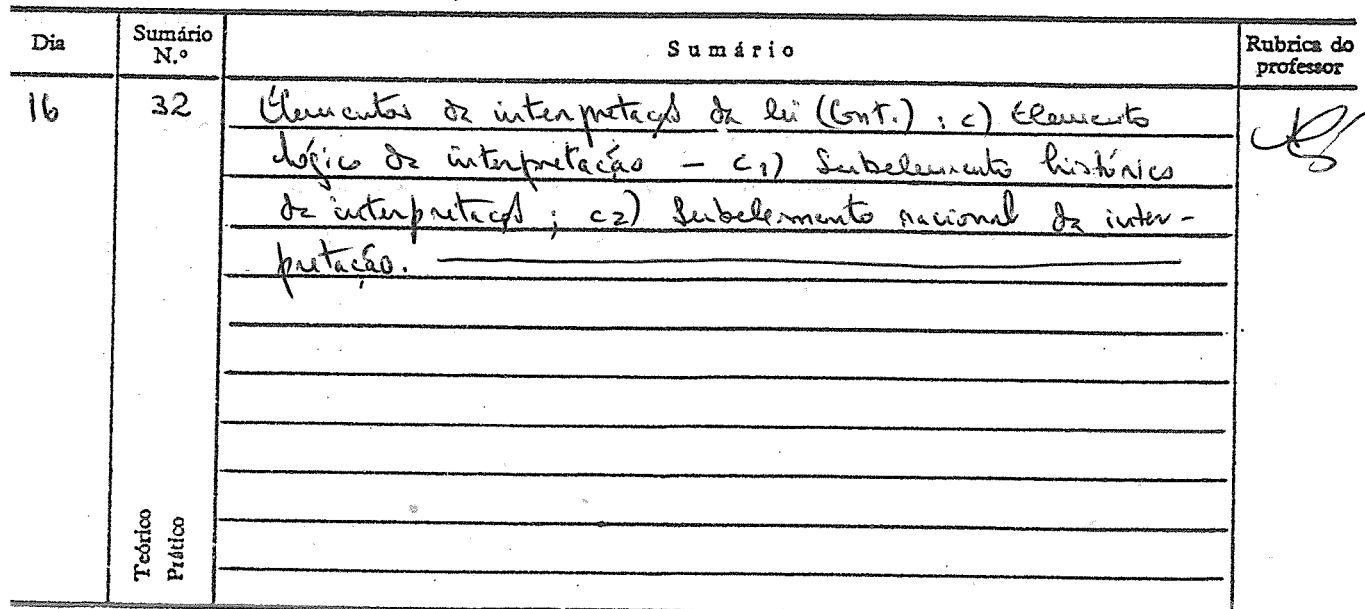 Dia
Sumário N.º
Sumário
Rubrica do professor
16
32
Elementos da interpretação da lei (Cont.): c) Elemento
lógico da interpretação - c1) Subelemento histórico
da interpretação; c2) Subelemento racional da inter-
pretação.
Teórico
Prático